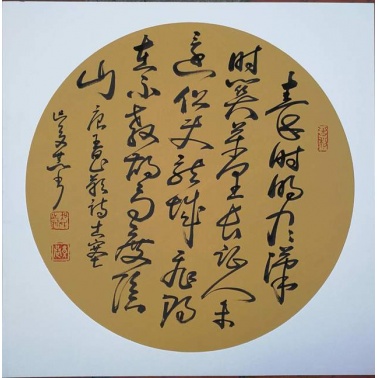 秦时明月汉
时关万里长征人未
还但使龙城飞将
在不教胡马度阴
山
唐王昌龄诗出塞